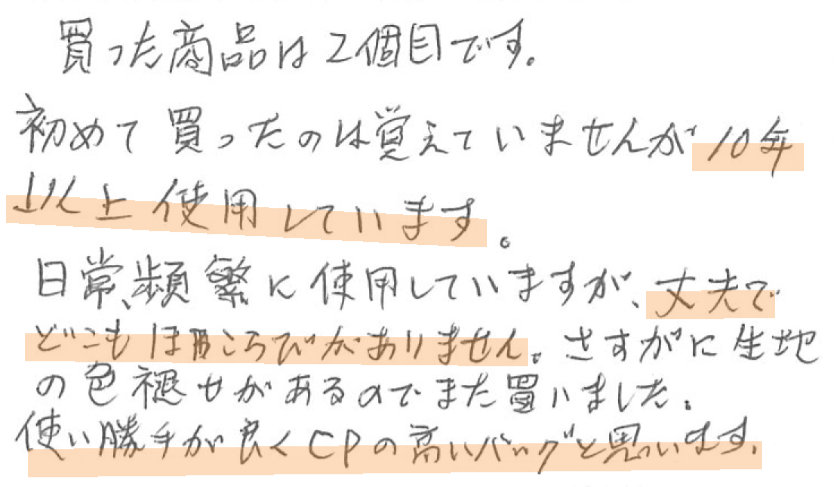 買った商品は2個目です。
初めて買ったのは覚えていませんが10年
以上使用しています。
日常、頻繁に使用していますが、丈夫で
どこもほころびがありません。さすがに生地
の色褪せがあるのでまた買いました。
使い勝手が良くCPの高いバッグと思います。